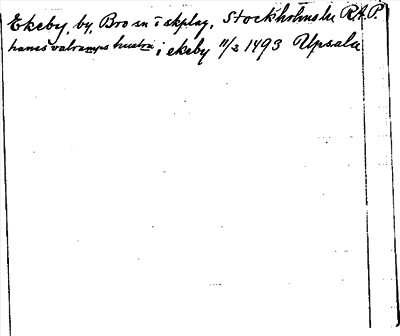 Ekeby, by, Bro sn i skplag, Stockholms län RAP.
hanes valramps hustra i ekeby 11/3 1493 Upsala